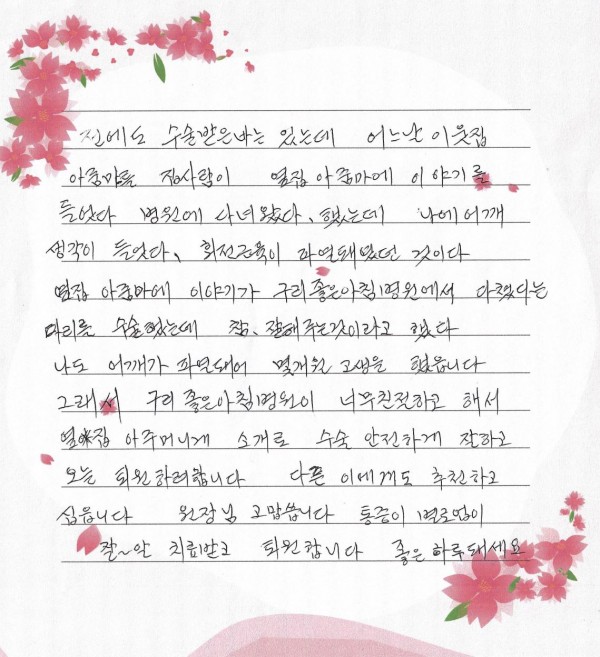 전에도 수술받은바는 있는데 어느날 이웃집
아줌마를 집사람이 옆집 아줌마에 이야기를
들었다 병원에 다녀왔다、했는데 나에 어깨
생각이 들었다、 회전근육이 파열돼있던 것이다
옆집 아줌마에 이야기가 구리좋은아침병원에서 다쳤다는
다리를 수술했는데 참、잘해주는것이라고 했다
나도 어깨가 파열돼어 몇개월 고생을 했읍니다
그래서 구리좋은아침병원이 너무친절하고 해서
옆집 아주머니께 소개로 수술 안전하게 잘하고
오늘 퇴원하려합니다 다른 이에게도 추천하고
십읍니다 원장님 고맙씁니다 통증이 별로없이
잘~안 치료받고 퇴원합니다 좋은하루돼세요